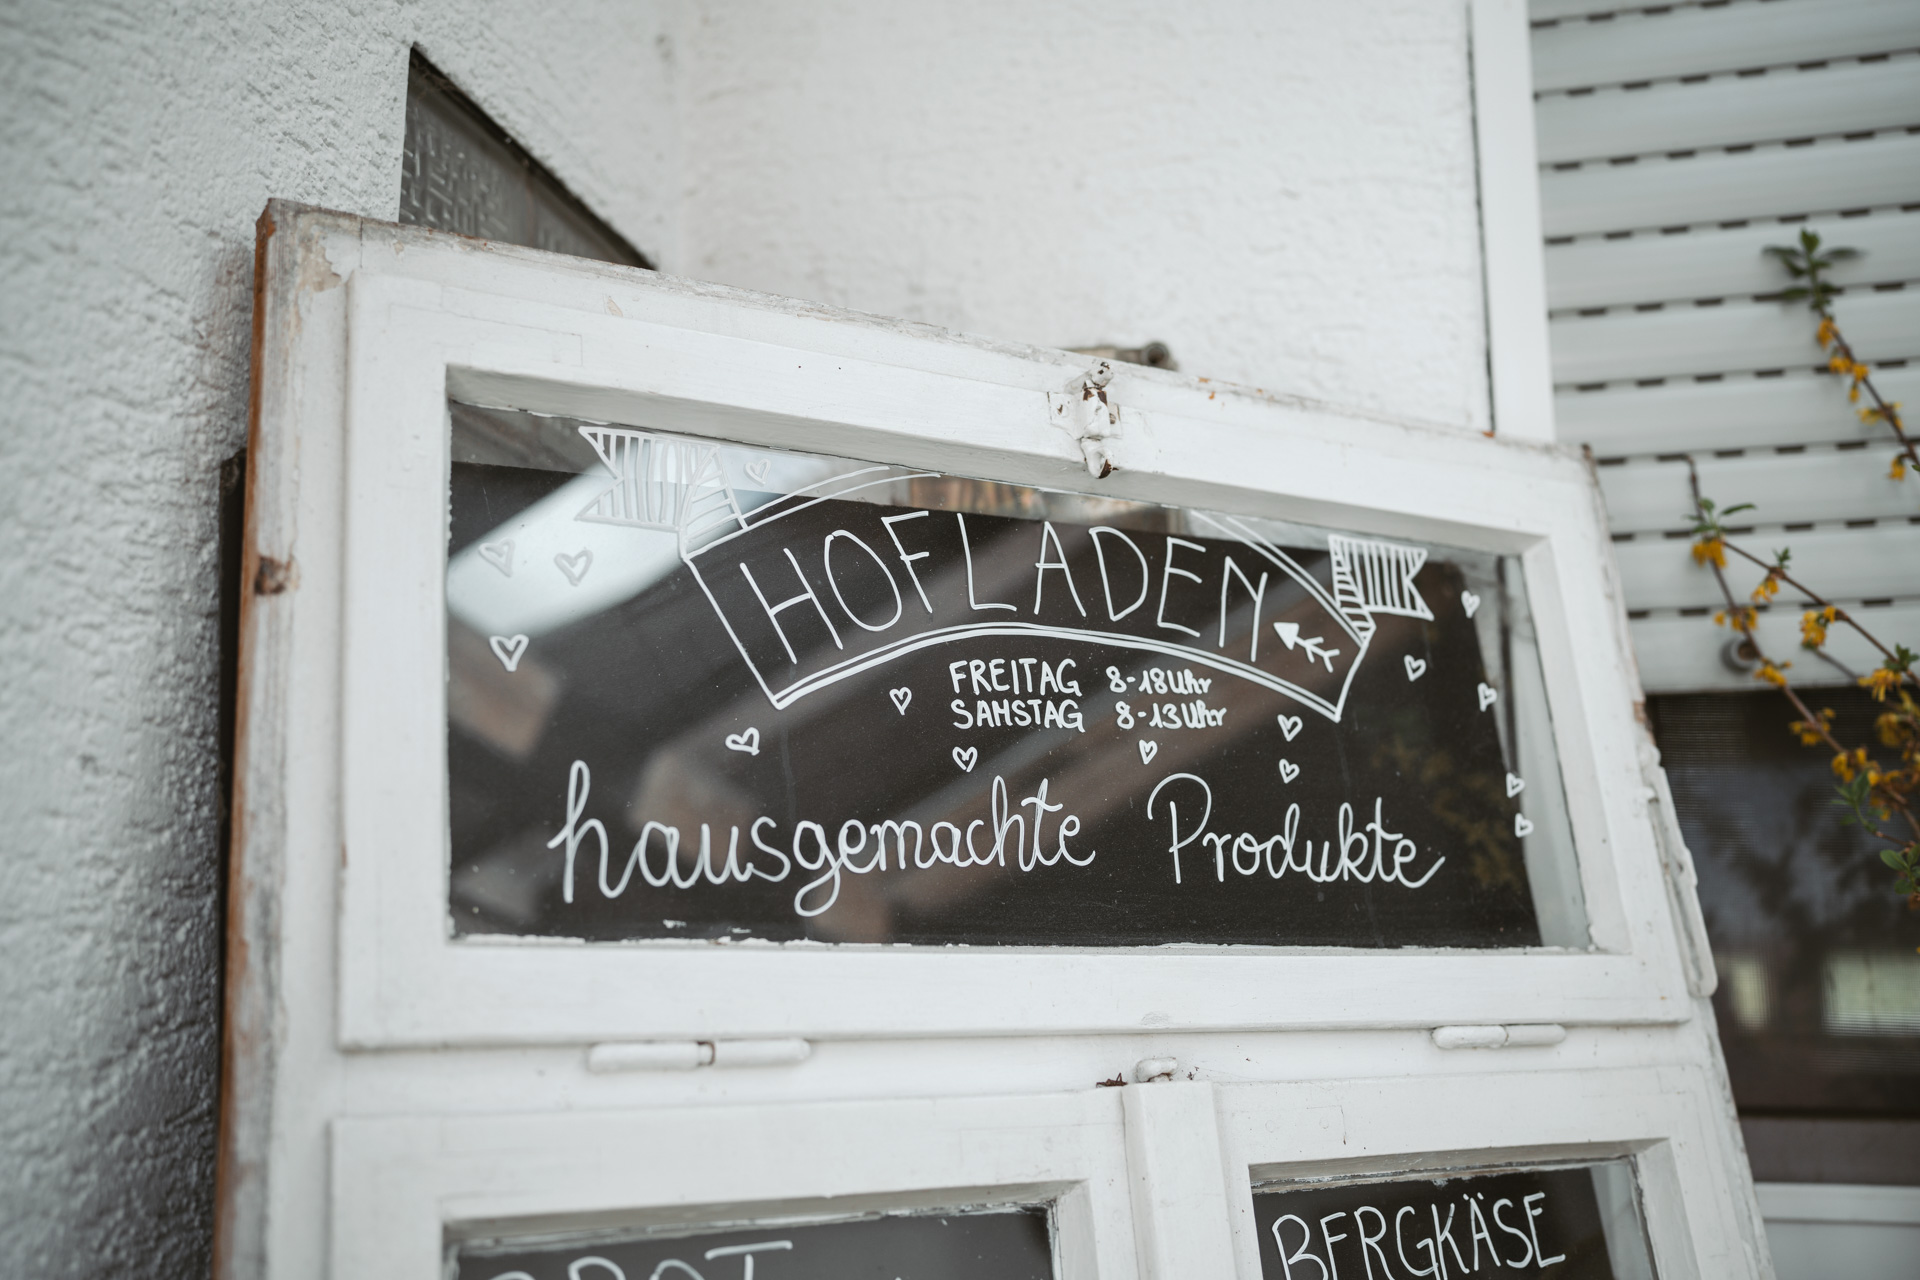 HOFLADEN
FREITAG 8-18Uhr
SAMSTAG 8-13Uhr
hausgemachte Produkte
BROT
BERGKÄSE